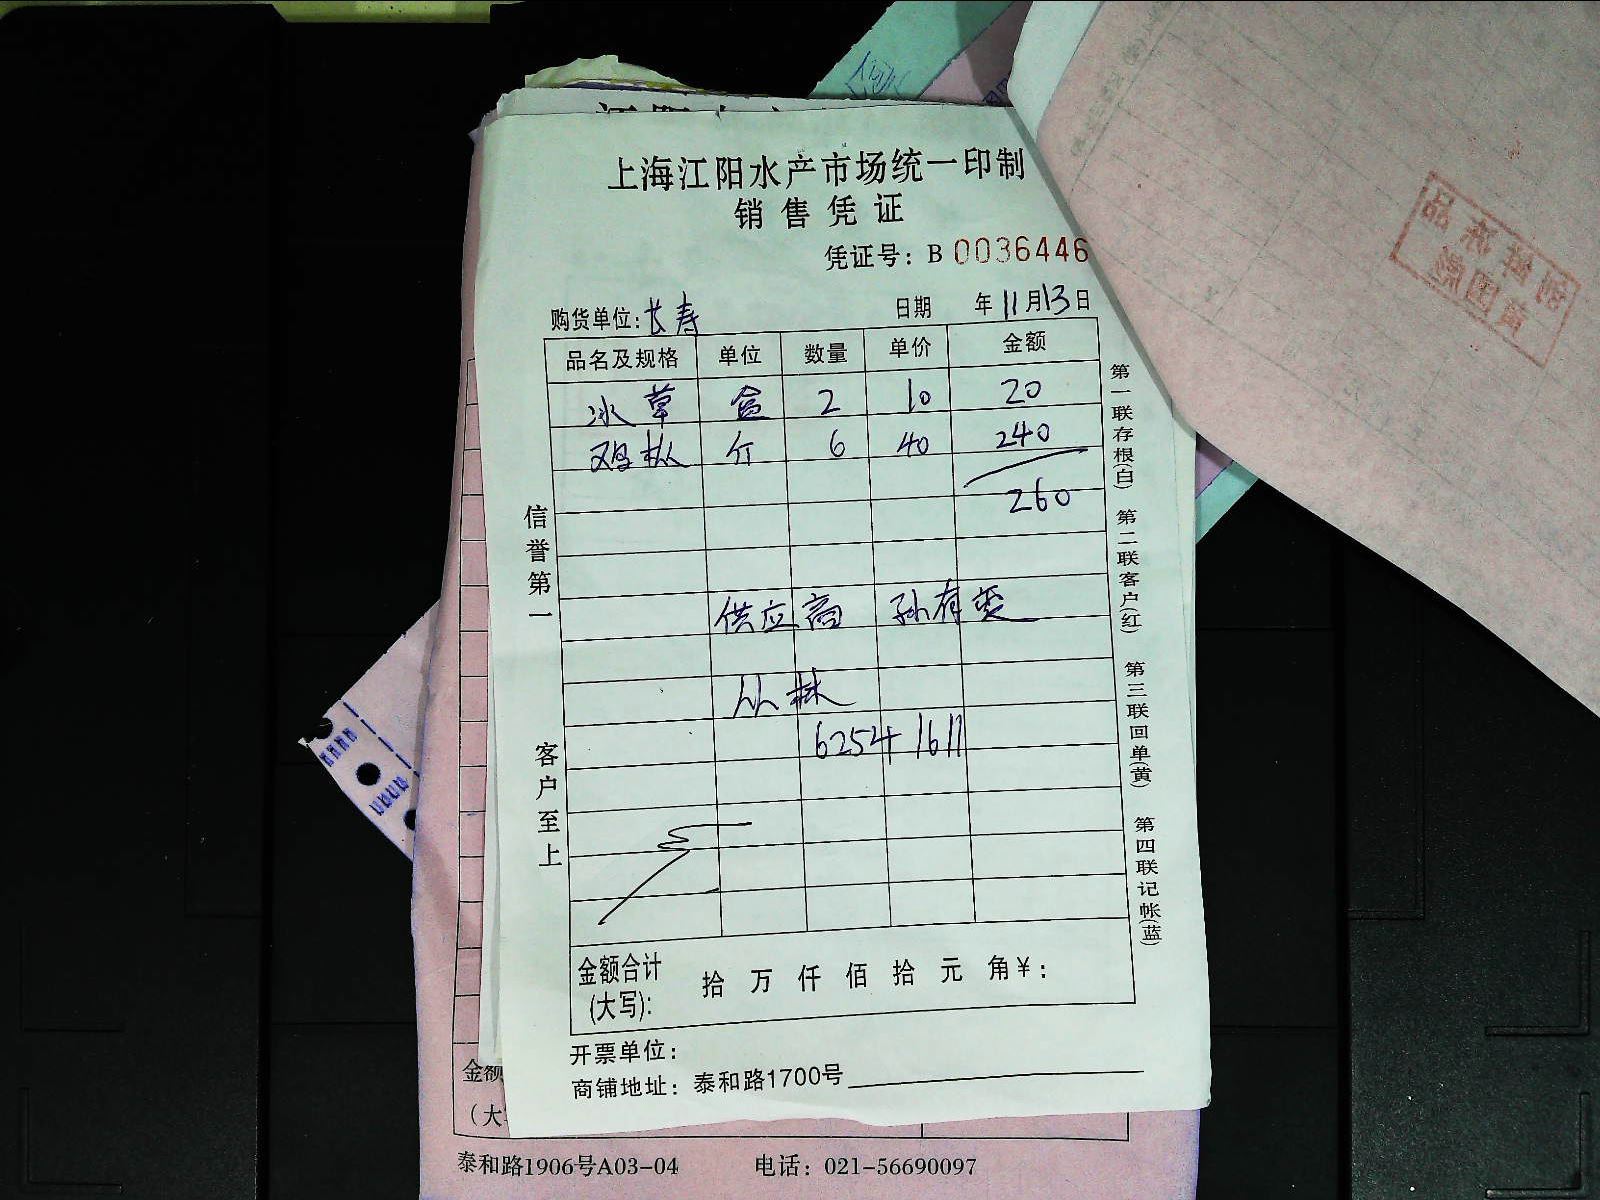 上海江阳水产市场统一印制
销售凭证
凭证号：B 0036446
购货单位:长寿 日期 年11月13日
品名及规格 单位 数量 单价 金额
冰草 盒 2 10 20
鸡枞 斤 6 40 240
260
供应商 孙有
丛林
62541611
信誉第一
客户至上
第一联存根(白) 第二联客户(红) 第三联回单(黄) 第四联记帐(蓝)
金额合计(大写): 拾 万 仟 佰 拾 元 角¥:
开票单位：
商铺地址：泰和路1700号
金额
（大
泰和路1906号A03-04 电话：021-56690097